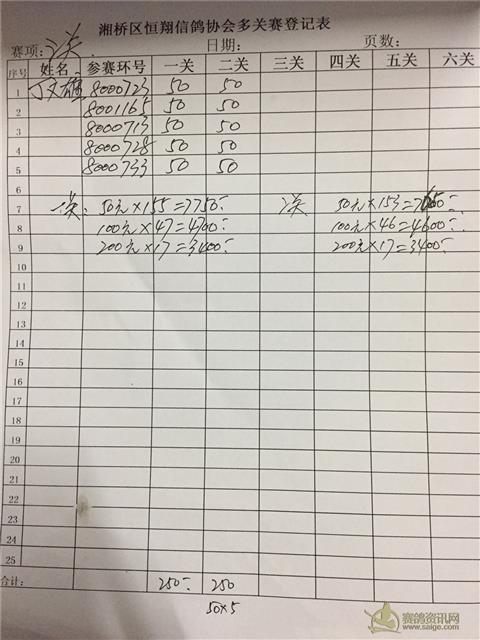 湘桥区恒翔信鸽协会多关赛登记表
赛项: 二关 日期: 页数:
序号 姓名 参赛环号 一关 二关 三关 四关 五关 六关
1 8000723 50 50
2 8001165 50 50
3 8000713 50 50
4 8000728 50 50
5 8000733 50 50
6
7 一关: 50元×155=7750 二关 50元×153=7650
8 100元×47=4700 100元×46=4600
9 200元×17=3400 200元×17=3400
10
11
12
13
14
15
16
17
18
19
20
21
22
23
24
25
合计: 250 250
50×5
赛鸽资讯网
www.saige.com